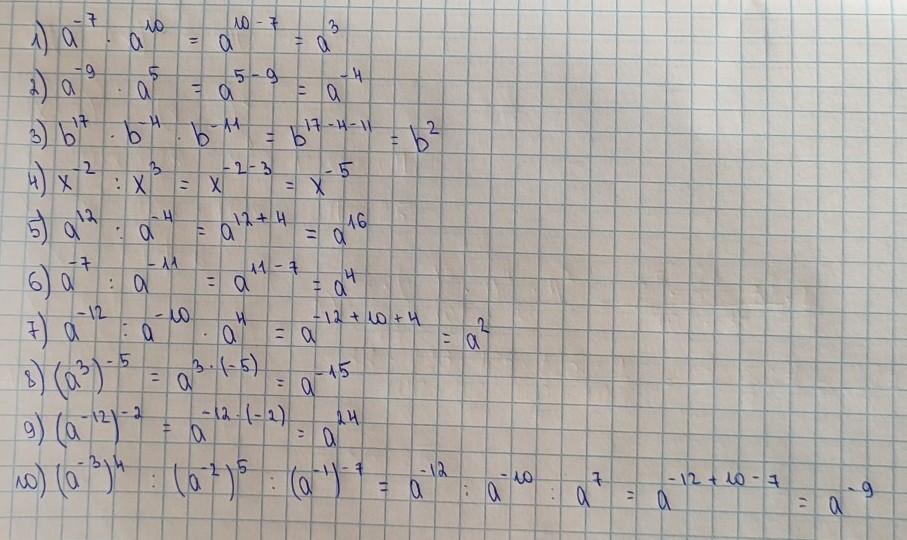 1) a⁻⁷ · a¹⁰ = a¹⁰⁻⁷ = a³
2) a⁻⁹ · a⁵ = a⁵⁻⁹ = a⁻⁴
3) b¹⁷ · b⁻⁴ · b⁻¹¹ = b¹⁷⁻⁴⁻¹¹ = b²
4) x⁻² : x³ = x⁻²⁻³ = x⁻⁵
5) a¹² : a⁻⁴ = a¹²⁺⁴ = a¹⁶
6) a⁻⁷ : a⁻¹¹ = a¹¹⁻⁷ = a⁴
7) a⁻¹² : a⁻¹⁰ · a⁴ = a⁻¹²⁺¹⁰⁺⁴ = a²
8) (a³)⁻⁵ = a³˙⁽⁻⁵⁾ = a⁻¹⁵
9) (a⁻¹²)⁻² = a⁻¹²˙⁽⁻²⁾ = a²⁴
10) (a⁻³)⁴ : (a⁻²)⁵ : (a⁻¹)⁻⁷ = a⁻¹² : a⁻¹⁰ : a⁷ = a⁻¹²⁺¹⁰⁻⁷ = a⁻⁹